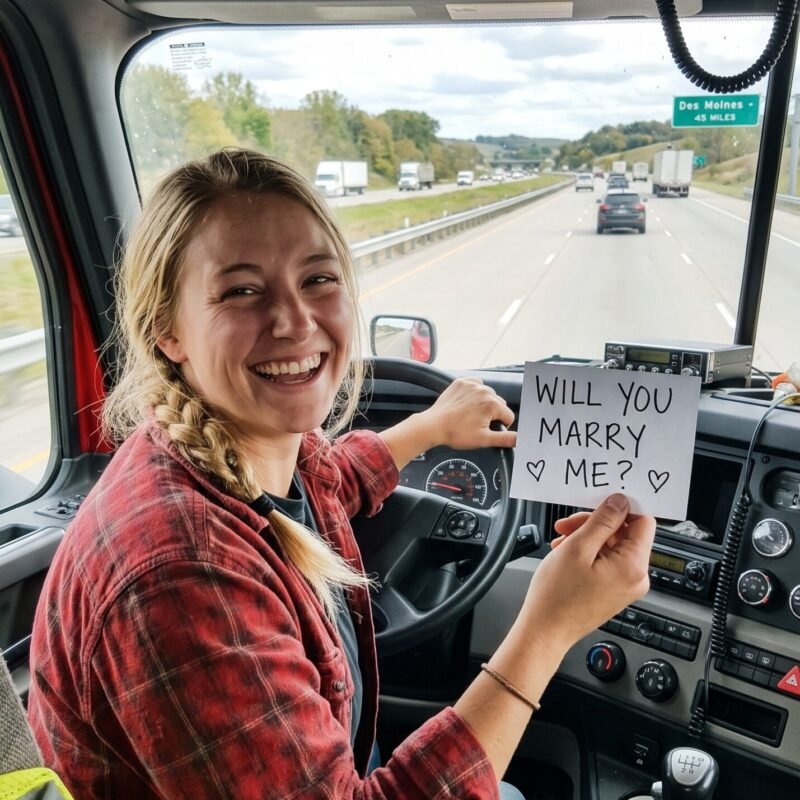 Des Moines
45 MILES
WILL YOU
MARRY
♡ ME? ♡